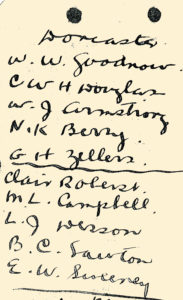 Doncaster
W. W. Goodnow.
C W H Douglas
W. J Armstrong
N. K Berry.
G H Zellers.
Clair Roberst.
M. L. Campbell.
L. J
B. C. Lawton
E. W. Sweeney